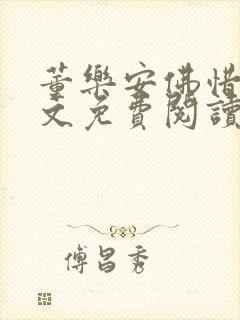 董樂安佛惜
文免費閱讀
傅昌秀